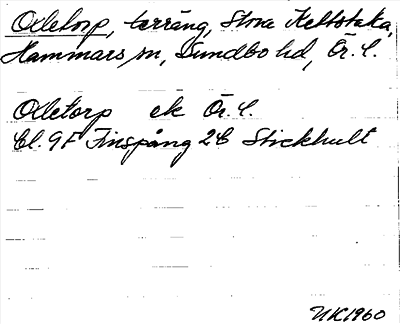 Odetorp, terräng, Stora Keltstaka,
Hammars sn, Sundbo hd, Ör. l.
Odetorp ek Ör. l.
bl. 9F Finspång 2C Stickhult
NK1960